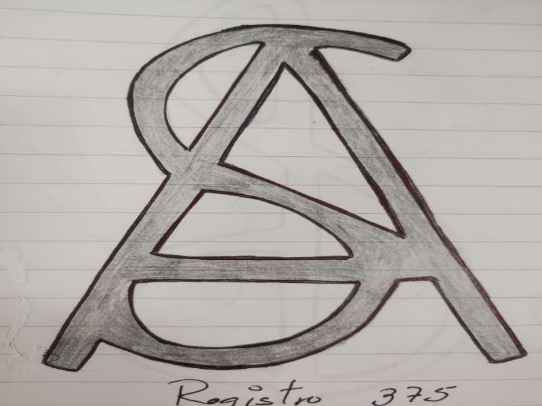 SA
Registro 375